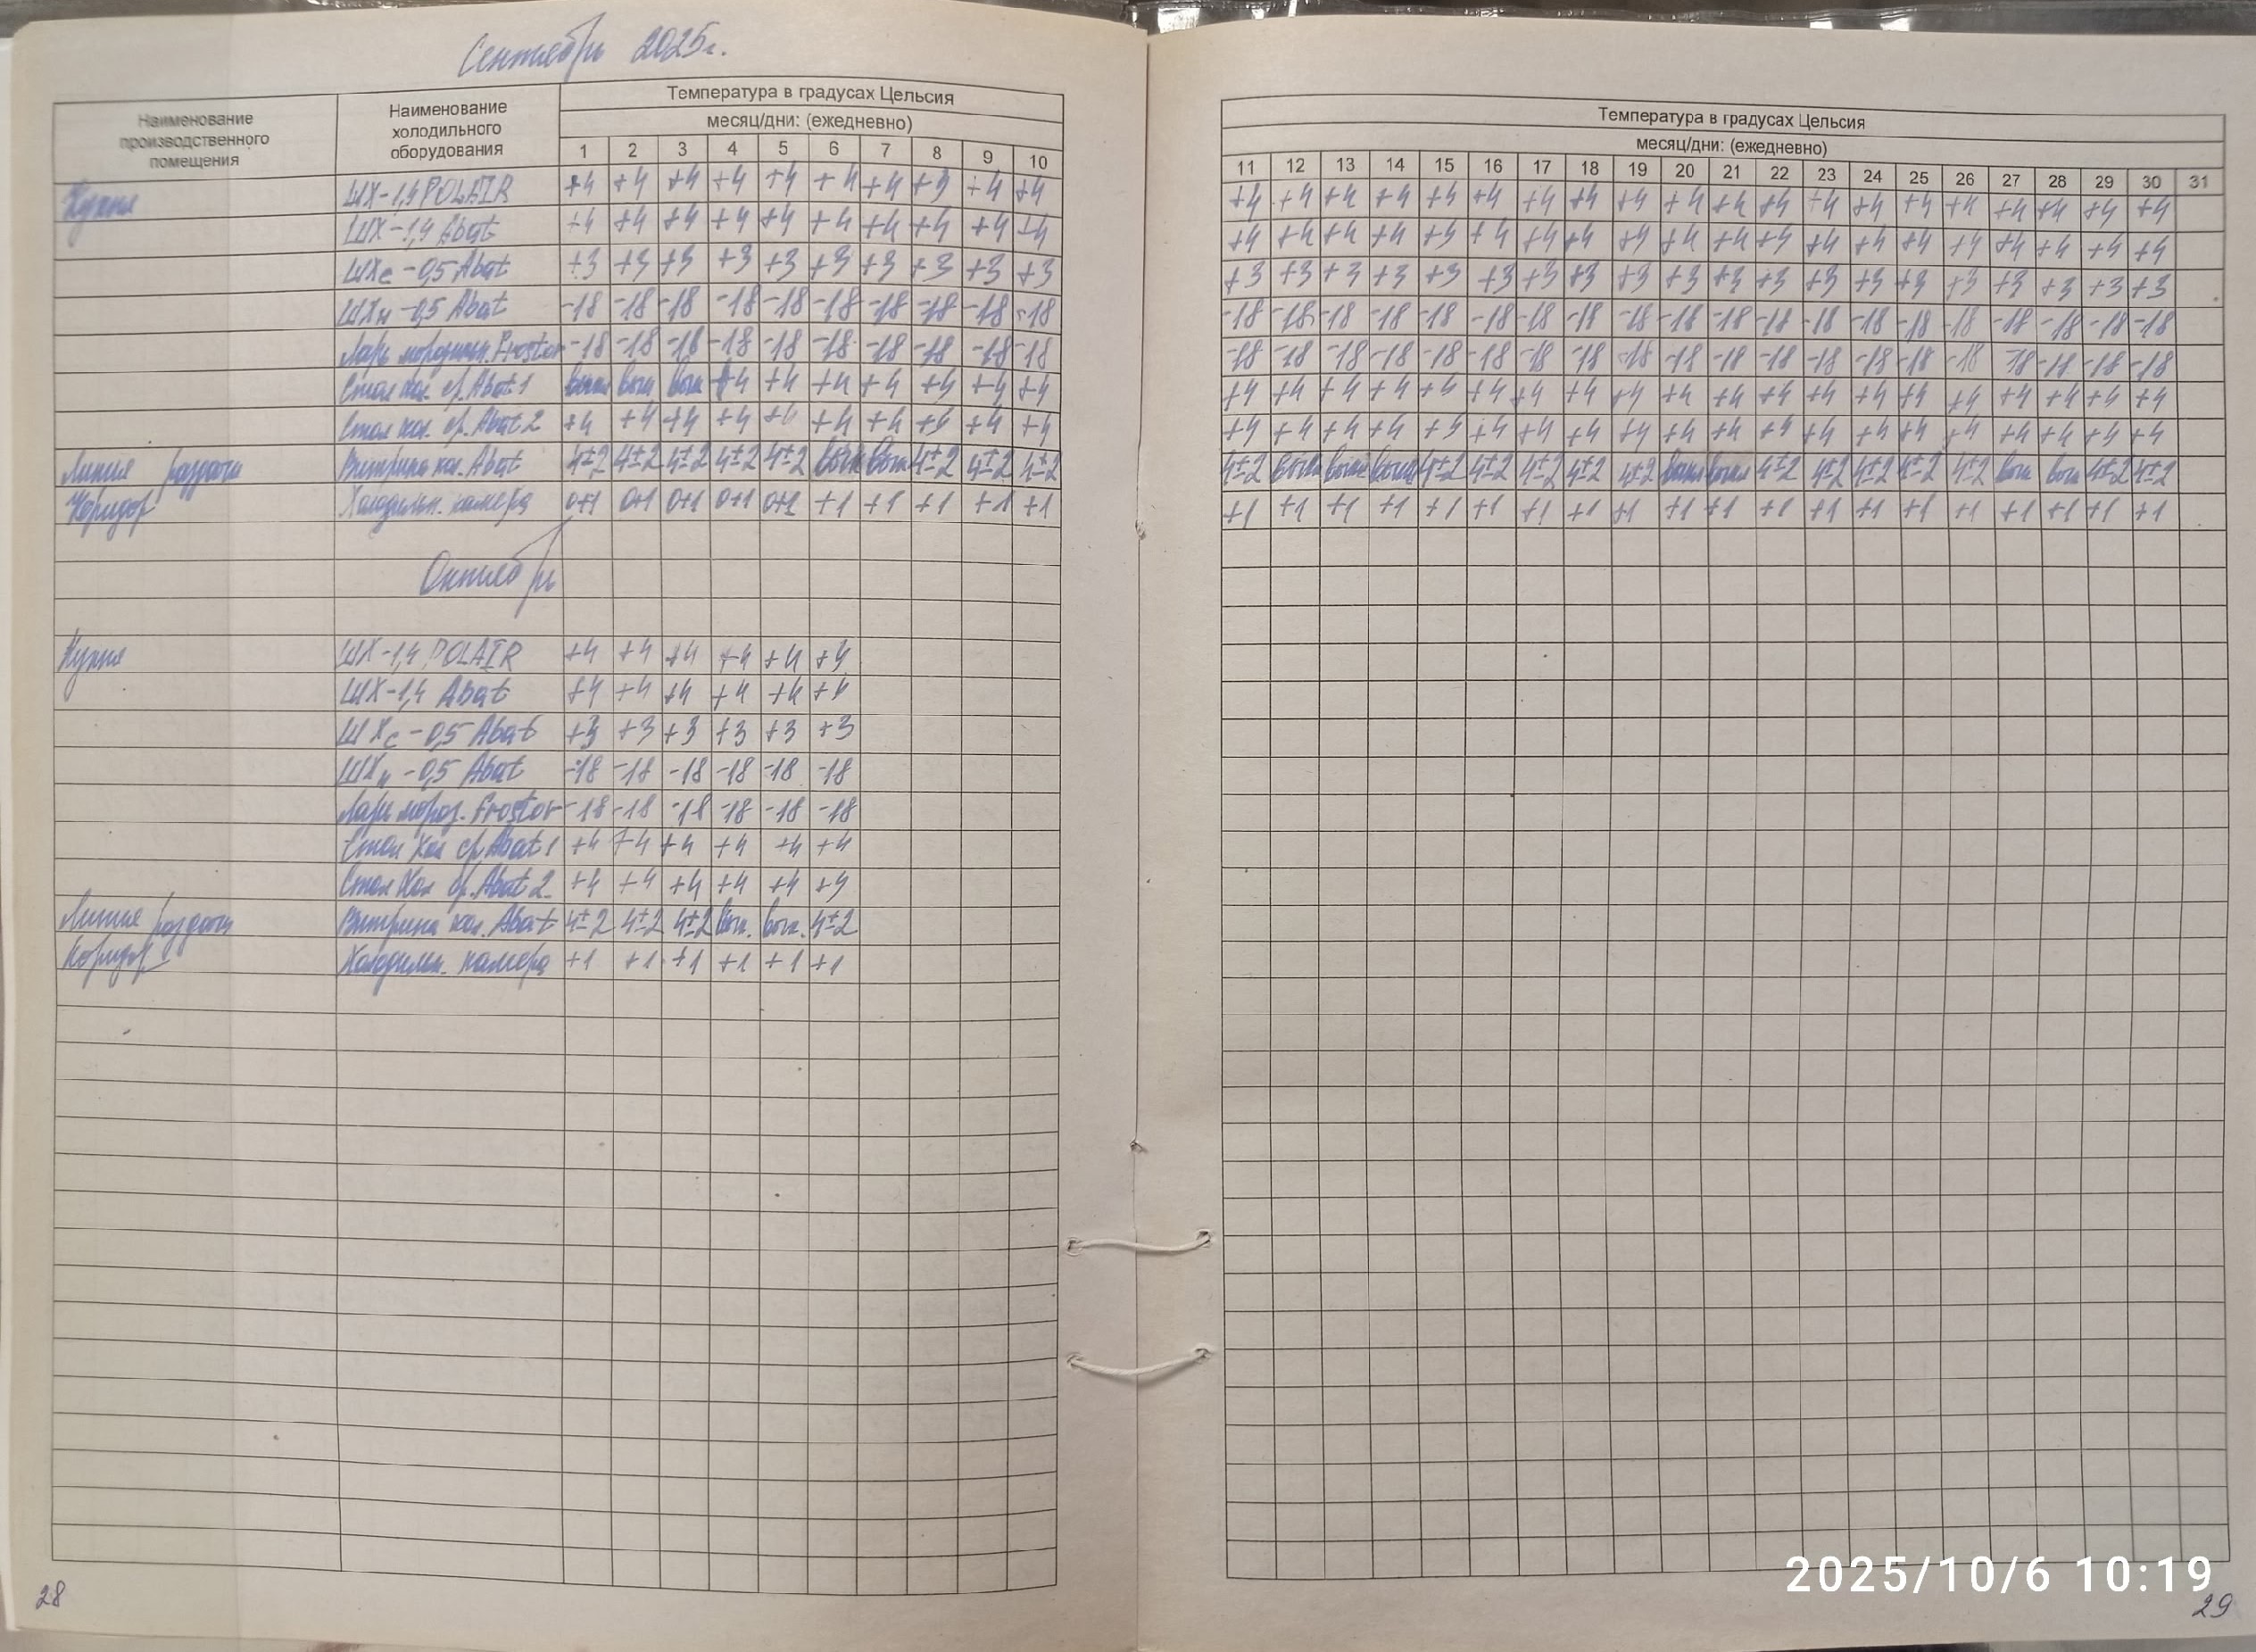 Сентябрь 2025г.
Наименование производственного помещения
Наименование холодильного оборудования
Температура в градусах Цельсия
месяц/дни: (ежедневно)
1 2 3 4 5 6 7 8 9 10
Кухня ШХ-1,4 POLAIR +4 +4 +4 +4 +4 +4 +4 +4 +4 +4
ШХ-1,4 Abat +4 +4 +4 +4 +4 +4 +4 +4 +4 +4
ШХс-0,5 Abat +3 +3 +3 +3 +3 +3 +3 +3 +3 +3
ШХн-0,5 Abat -18 -18 -18 -18 -18 -18 -18 -18 -18 -18
Ларь морозильн. Frostor -18 -18 -18 -18 -18 -18 -18 -18 -18 -18
Стол хол. ср. Abat 1 выкл выкл выкл +4 +4 +4 +4 +4 +4 +4
Стол хол. ср. Abat 2 +4 +4 +4 +4 +4 +4 +4 +4 +4
Линия раздачи Витрина хол. Abat 4±2 4±2 4±2 4±2 4±2 выкл выкл 4±2 4±2 4±2
Коридор Холодильн. камера 0+1 0+1 0+1 0+1 0+1 +1 +1 +1 +1 +1
Октябрь
Кухня ШХ-1,4 POLAIR +4 +4 +4 +4 +4 +4
ШХ-1,4 Abat +4 +4 +4 +4 +4 +4
ШХс-0,5 Abat +3 +3 +3 +3 +3 +3
ШХн-0,5 Abat -18 -18 -18 -18 -18 -18
Ларь мороз. Frostor -18 -18 -18 -18 -18 -18
Стол Хол ср. Abat 1 +4 +4 +4 +4 +4 +4
Стол Хол ср. Abat 2 +4 +4 +4 +4 +4 +4
Линия раздачи Витрина хол. Abat 4±2 4±2 4±2 вык. вык. 4±2
Коридор Холодильн. камера +1 +1 +1 +1 +1 +1
28
Температура в градусах Цельсия
месяц/дни: (ежедневно)
11 12 13 14 15 16 17 18 19 20 21 22 23 24 25 26 27 28 29 30 31
+4 +4 +4 +4 +4 +4 +4 +4 +4 +4 +4 +4 +4 +4 +4 +4 +4 +4 +4 +4
+4 +4 +4 +4 +4 +4 +4 +4 +4 +4 +4 +4 +4 +4 +4 +4 +4 +4 +4 +4
+3 +3 +3 +3 +3 +3 +3 +3 +3 +3 +3 +3 +3 +3 +3 +3 +3 +3 +3 +3
-18 -18 -18 -18 -18 -18 -18 -18 -18 -18 -18 -18 -18 -18 -18 -18 -18 -18 -18 -18
-18 -18 -18 -18 -18 -18 -18 -18 -18 -18 -18 -18 -18 -18 -18 -18 -18 -18 -18 -18
+4 +4 +4 +4 +4 +4 +4 +4 +4 +4 +4 +4 +4 +4 +4 +4 +4 +4 +4 +4
+4 +4 +4 +4 +4 +4 +4 +4 +4 +4 +4 +4 +4 +4 +4 +4 +4 +4 +4 +4
4±2 выкл выкл выкл 4±2 4±2 4±2 4±2 4±2 выкл выкл 4±2 4±2 4±2 4±2 4±2 вык вык 4±2 4±2
+1 +1 +1 +1 +1 +1 +1 +1 +1 +1 +1 +1 +1 +1 +1 +1 +1 +1 +1 +1
2025/10/6 10:19
29